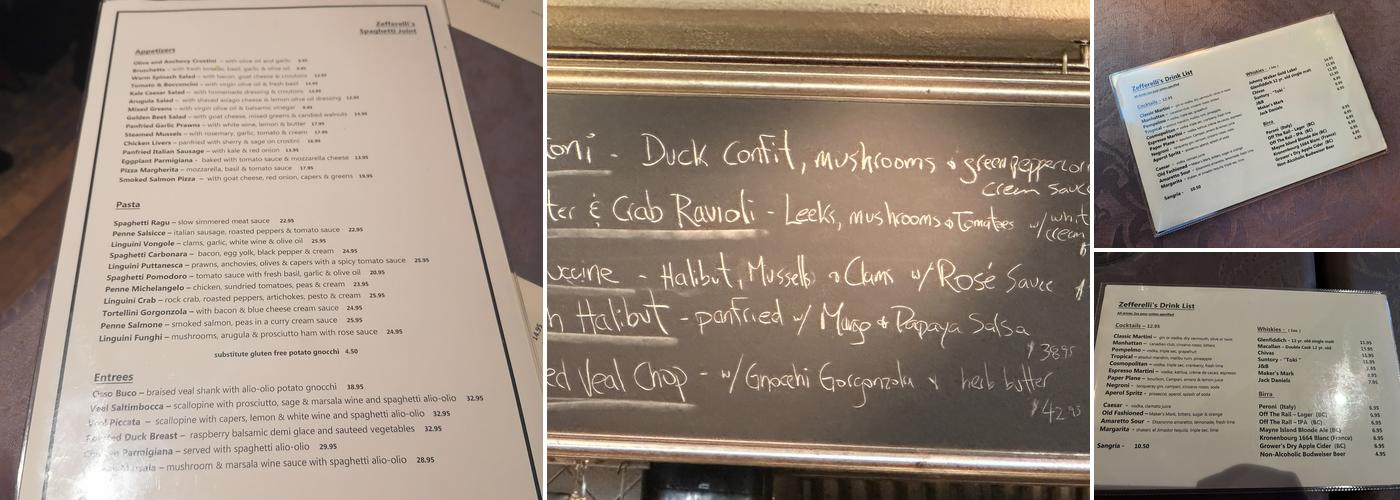 Zefferelli's
Spaghetti Joint
Appetizers
Olive and Anchovy Crostini – with olive oil and garlic 9.95
Bruschetta – with fresh tomato, basil, garlic & olive oil 9.95
Warm Spinach Salad – with bacon, goat cheese & croutons 12.95
Tomato & Bocconcini – with virgin olive oil & fresh basil 14.95
Kale Caesar Salad – with homemade dressing & croutons 13.95
Arugula Salad – with shaved asiago cheese & lemon olive oil dressing 13.95
Mixed Greens – with virgin olive oil & balsamic vinegar 9.95
Golden Beet Salad – with goat cheese, mixed greens & candied walnuts 14.95
Panfried Garlic Prawns – with white wine, lemon & butter 17.95
Steamed Mussels – with rosemary, garlic, tomato & cream 17.95
Chicken Livers – panfried with sherry & sage on crostini 16.95
Panfried Italian Sausage – with kale & red onion 13.95
Eggplant Parmigiana - baked with tomato sauce & mozzarella cheese 13.95
Pizza Margherita – mozzarella, basil & tomato sauce 17.95
Smoked Salmon Pizza – with goat cheese, red onion, capers & greens 19.95
Pasta
Spaghetti Ragu – slow simmered meat sauce 22.95
Penne Salsicce – italian sausage, roasted peppers & tomato sauce 22.95
Linguini Vongole – clams, garlic, white wine & olive oil 25.95
Spaghetti Carbonara – bacon, egg yolk, black pepper & cream 24.95
Linguini Puttanesca – prawns, anchovies, olives & capers with a spicy tomato sauce 25.95
Spaghetti Pomodoro – tomato sauce with fresh basil, garlic & olive oil 20.95
Penne Michelangelo – chicken, sundried tomatoes, peas & cream 23.95
Linguini Crab – rock crab, roasted peppers, artichokes, pesto & cream 25.95
Tortellini Gorgonzola – with bacon & blue cheese cream sauce 24.95
Penne Salmone – smoked salmon, peas in a curry cream sauce 25.95
Linguini Funghi – mushrooms, arugula & prosciutto ham with rose sauce 24.95
substitute gluten free potato gnocchi 4.50
Entrees
Osso Buco – braised veal shank with alio-olio potato gnocchi 38.95
Veal Saltimbocca – scallopine with prosciutto, sage & marsala wine and spaghetti alio-olio 32.95
Veal Piccata – scallopine with capers, lemon & white wine and spaghetti alio-olio 32.95
Duck Breast – raspberry balsamic demi glace and sauteed vegetables 32.95
Parmigiana – served with spaghetti alio-olio 29.95
Marsala – mushroom & marsala wine sauce with spaghetti alio-olio 28.95
14.95
toni - Duck Confit, mushrooms & green peppercor
cream sauce
ter & Crab Ravioli - Leeks, mushrooms & Tomatoes w/ whit
cream
uccine - Halibut, Mussells & Clams w/ Rosé Sauce
n Halibut - panfried w/ Mango & Papaya Salsa
$38.95
ed Veal Chop - w/ Gnocchi Gorgonzola & herb butter
$42.95
Zefferelli's Drink List
Cocktails - 12.95
Classic Martini – gin or vodka, dry vermouth, olive or twist
Manhattan –
Pompelmo –
Tropical –
Cosmopolitan –
Espresso Martini –
Paper Plane –
Negroni –
Aperol Spritz –
Caesar – vodka, clamato juice
Old Fashioned –
Amaretto Sour –
Margarita –
Sangria - 10.50
Whiskies - ( 1oz )
Johnny Walker Gold Label
Glenfiddich 12 yr. old single malt
Chivas
Suntory - "Toki"
J&B
Maker's Mark
Jack Daniels
Birra
Peroni (Italy)
Off The Rail - Lager (BC)
Off The Rail - IPA (BC)
Mayne Island Blonde Ale (BC)
Kronenbourg 1664 Blanc (France)
Grower's Dry Apple Cider (BC)
Non-Alcoholic Budweiser Beer
Zefferelli's Drink List
Cocktails – 12.95
Classic Martini – gin or vodka, dry vermouth, olive or twist
Manhattan – canadian club, cinzano rosso, bitters
Pompelmo – vodka, triple sec, grapefruit
Tropical – absolut mandrin, malibu rum, pineapple
Cosmopolitan – vodka, triple sec, cranberry, fresh lime
Espresso Martini – vodka, kahlua, crème de cacao, espresso
Paper Plane – bourbon, Campari, amaro & lemon juice
Negroni – tanqueray gin, campari, cinzano rosso, soda
Aperol Spritz – prosecco, aperol, splash of soda
Caesar – vodka, clamato juice
Old Fashioned – Maker's Mark, bitters, sugar & orange
Amaretto Sour – Disaronno amaretto, lemonade, fresh lime
Margarita – shaken, el Jimador tequila, triple sec, lime
Sangria - 10.50
Whiskies - ( 1oz )
Glenfiddich - 12 yr. old single malt 11.95
Macallan – Double Cask 12 yr. old
Chivas
Suntory - "Toki"
J&B
Maker's Mark
Jack Daniels 7.95
Birra
Peroni (Italy) 6.95
Off The Rail – Lager (BC) 6.95
Off The Rail – IPA (BC) 6.95
Mayne Island Blonde Ale (BC) 6.95
Kronenbourg 1664 Blanc (France) 6.95
Grower's Dry Apple Cider (BC) 6.95
Non-Alcoholic Budweiser Beer 4.95